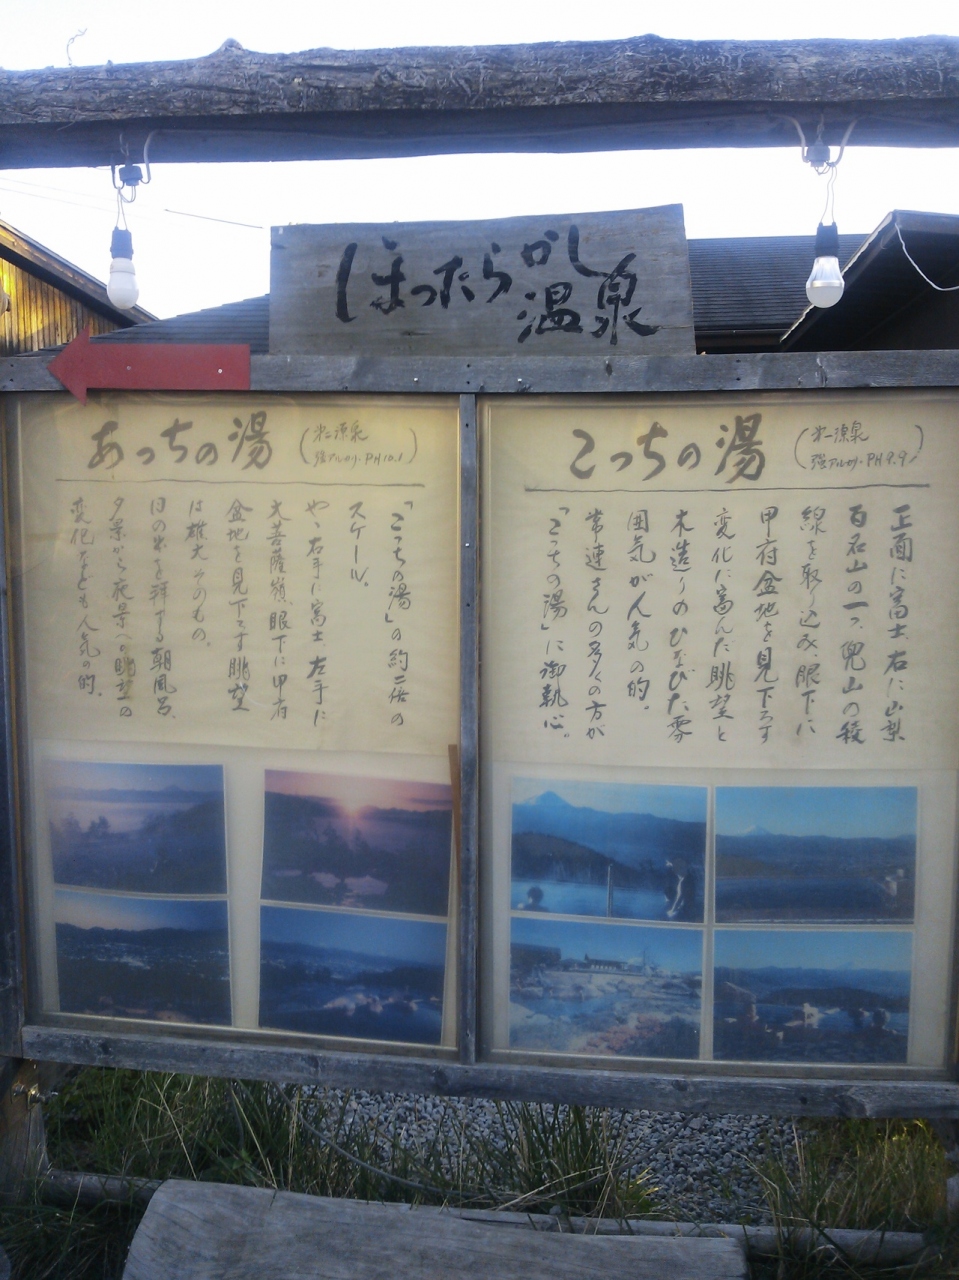 ほったらかし
温泉
こっちの湯
(第一源泉
強アルカリ・PH9.9)
正面に富士、右に山梨
百名山の一つ、兜山の稜
線を取り込み、眼下に
甲府盆地を見下ろす
変化に富んだ眺望と
木造りのひなびた雰
囲気が人気の的。
常連さんの多くの方が
「こっちの湯」に御執心。
あっちの湯
(第二源泉
強アルカリ・PH10.1)
「こっちの湯」の約二倍の
スケール。
やゝ右手に富士、左手に
大菩薩嶺、眼下に甲府
盆地を見下ろす眺望
は雄大そのもの。
日の出を拝する朝風呂、
夕景から夜景への眺望の
変化なども人気の的。